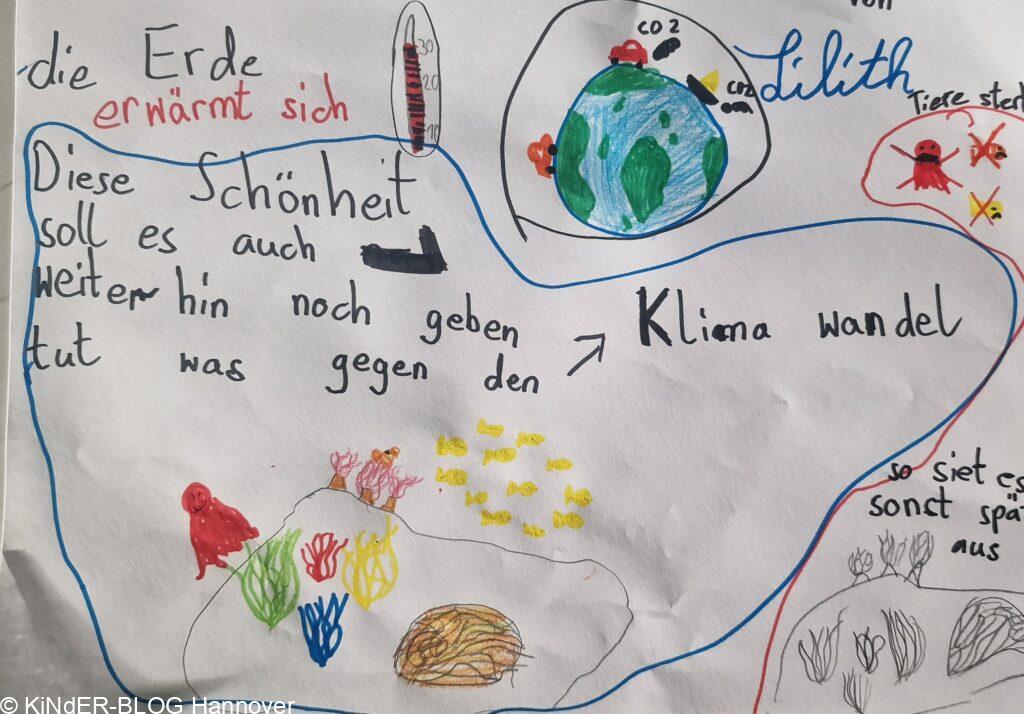 von
die Erde
erwärmt sich
30
20
10
CO2
CO2
Lilith
Tiere
Diese Schönheit
soll es auch
weiter hin noch geben
tut was gegen den → Klima wandel
so siet es
sonst
aus
© KiNdER-BLOG Hannover